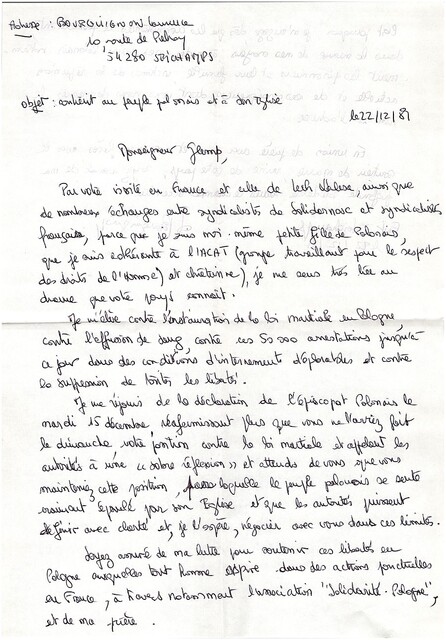 Adresse : BOURGUIGNON Laurence
10 route de Pulnoy
54280 SEICHAMPS
Objet : soutient au peuple polonais et à son Eglise
le 22/12/81
Monseigneur Glemp,
Par votre visite en France et celle de Lech Walesa, ainsi que
de nombreux échanges entre syndicalistes de Solidarnosc et syndicalistes
français, parce que je suis moi-même petite fille de Polonais,
que je suis adhérente à l'ACAT (groupe travaillant pour le respect
des droits de l'Homme) et chrétienne), je me sens très liée au
drame que votre pays connaît.
Je m'élève contre l'instauration de la loi martiale en Pologne
contre l'effusion de sang contre ces 55 000 arrestations jusqu'à
ce jour dans des conditions d'internement déplorables et contre
la suppression de toutes les libertés.
Je me réjouis de la déclaration de l'Episcopat Polonais le
mardi 15 décembre réaffirmissant plus que vous ne l'aviez fait
le dimanche votre position contre la loi martiale et appelant les
autorités à une « sobre réflexion » et attends de vous que vous
mainteniez cette position, laquelle le peuple polonais se sente
vraiment épaulé par son Eglise et que les autorités puissent
définir avec clarté et, je l'espère, négocier avec vous dans ces limites.
Soyez assuré de ma lutte pour soutenir ces libertés en
Pologne auxquelles tout homme aspire dans des actions ponctuelles
en France, à travers notamment l'association "Solidarité-Pologne",
et de ma prière.